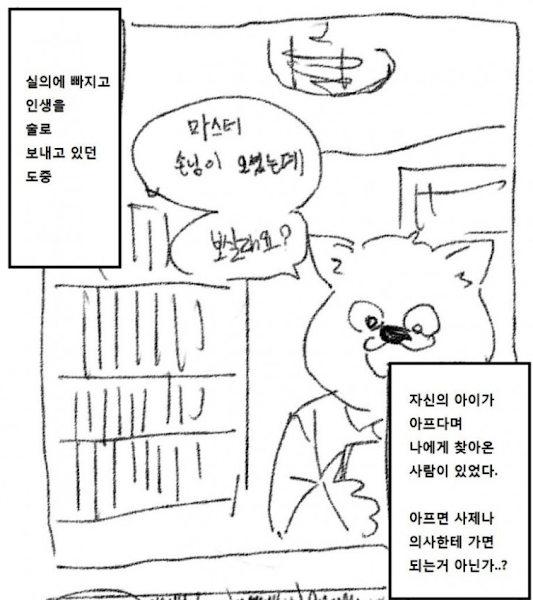 실의에 빠지고
인생을
술로
보내고 있던
도중
마스터
손님이 오셨는데
보실래요?
자신의 아이가
아프다며
나에게 찾아온
사람이 있었다.
아프면 사제나
의사한테 가면
되는거 아닌가..?